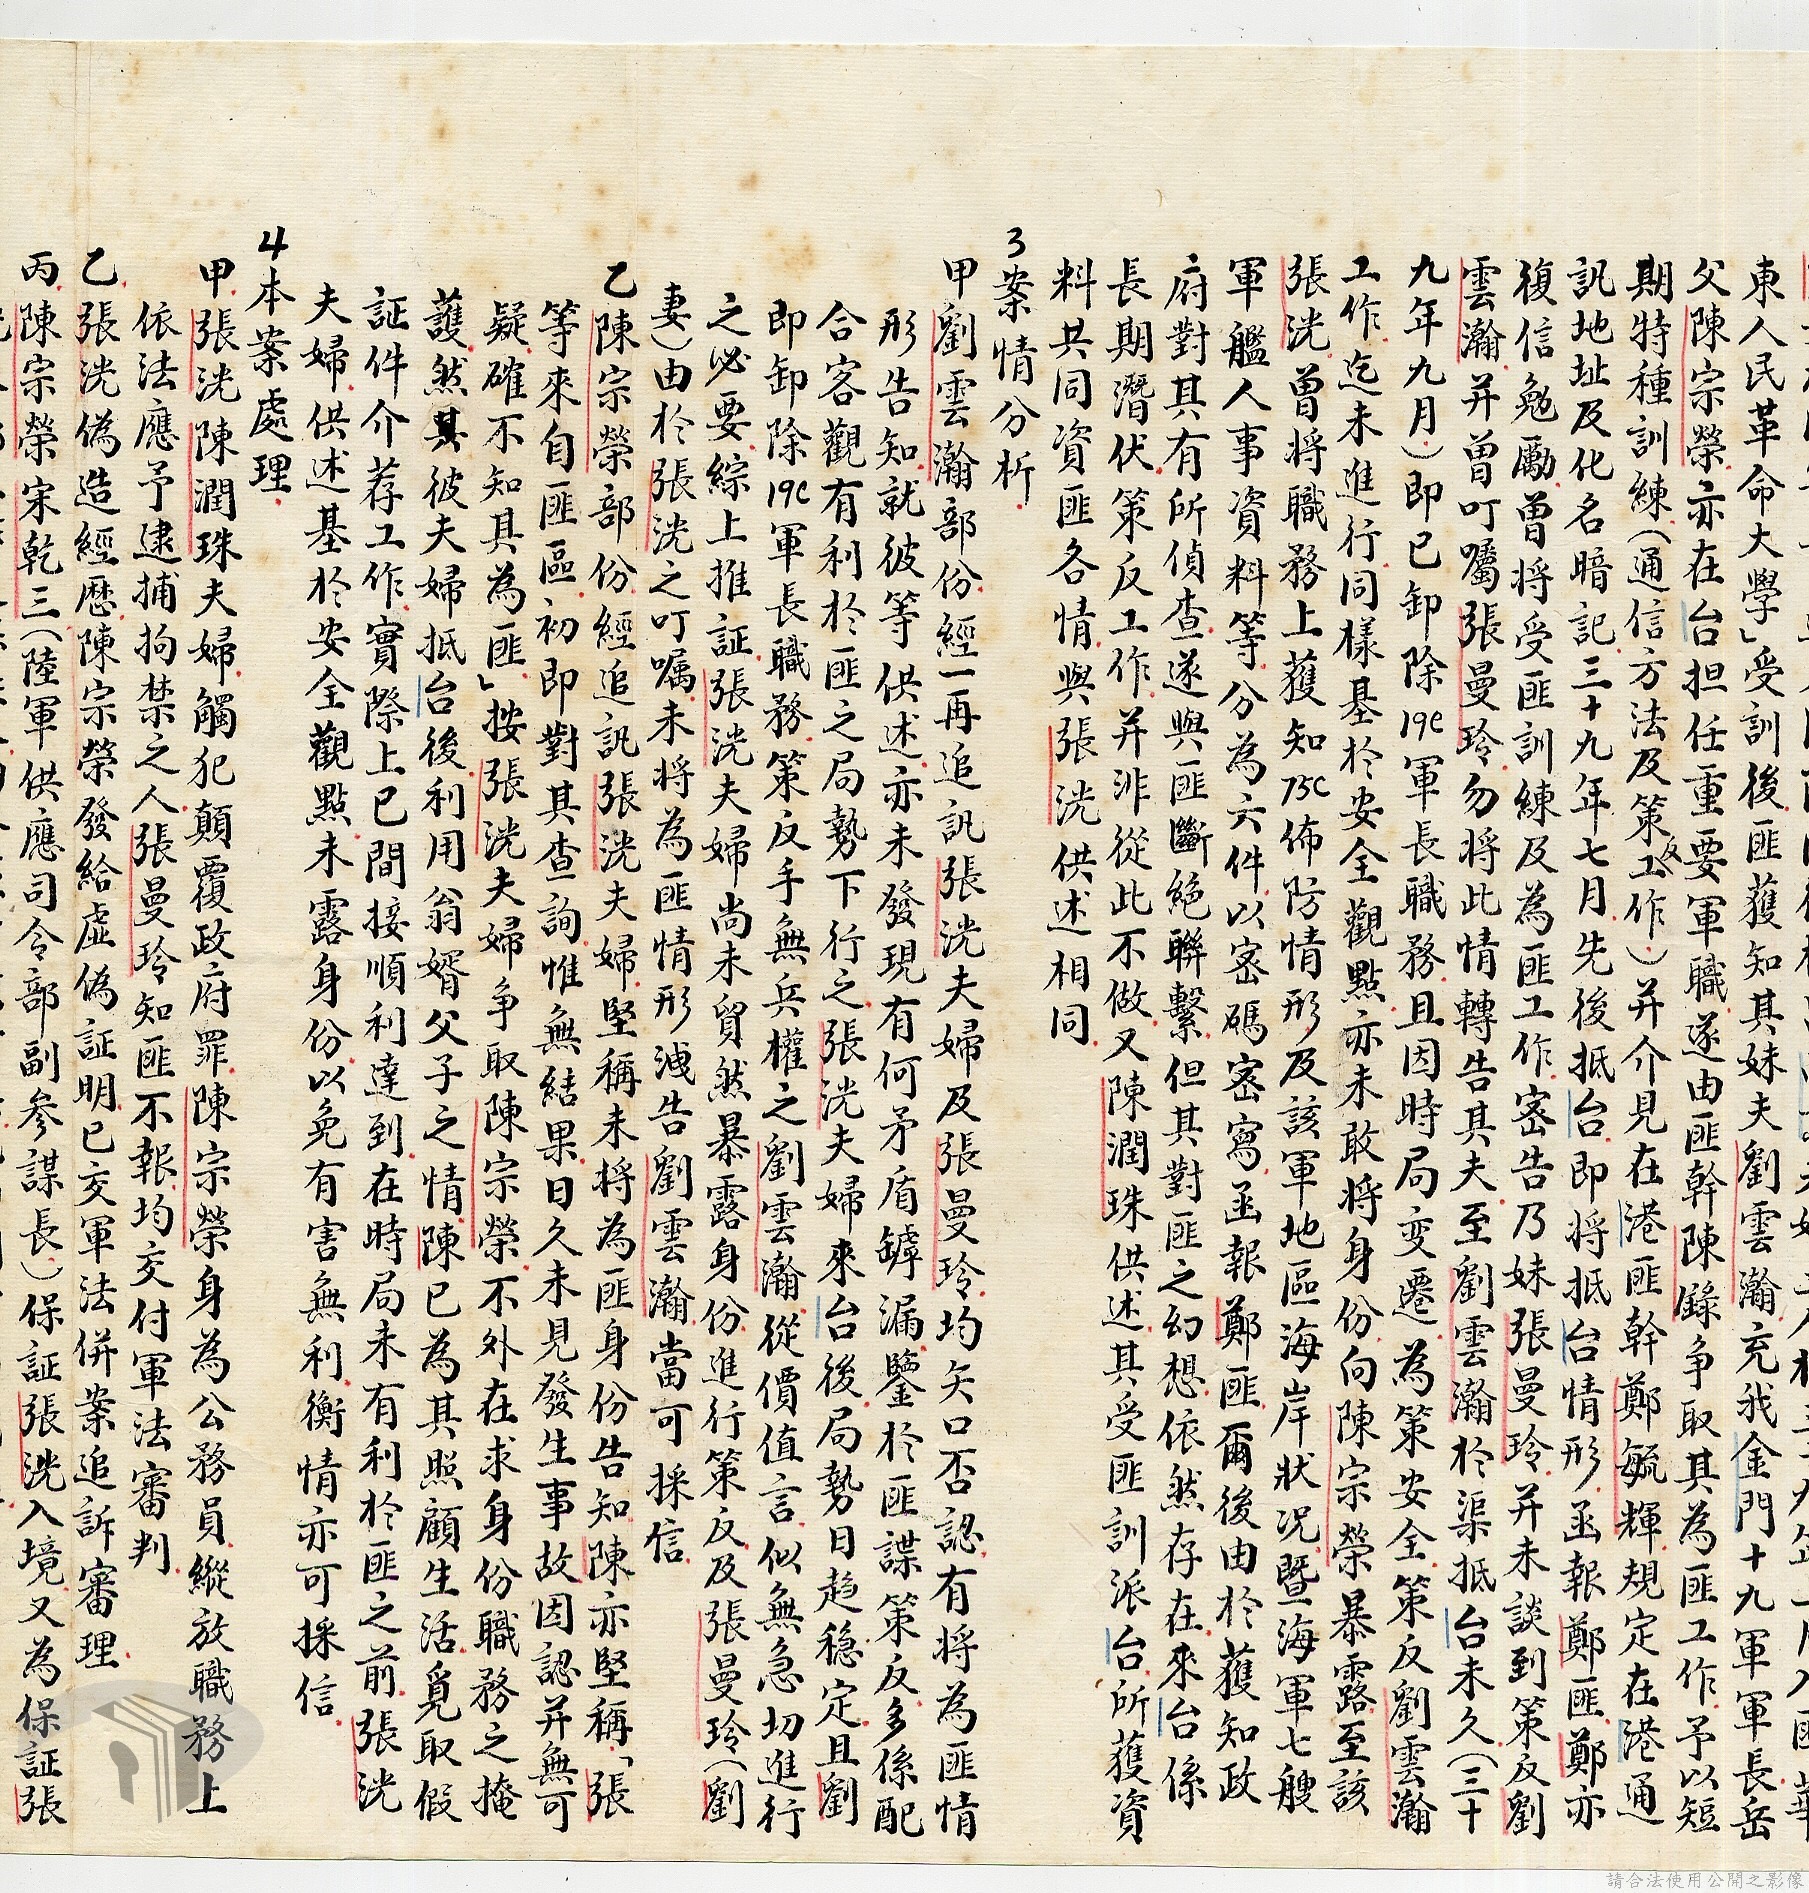 東人民革命大學」受訓後匪獲知其妹夫劉雲瀚充我金門十九軍軍長岳
父陳宗榮亦在台担任重要軍職遂由匪幹陳錄争取其為匪工作予以短
期特種訓練（通信方法及策反工作）并介見在港匪幹鄭毓輝規定在港通
訊地址及化名暗記三十九年七月先後抵台即將抵台情形函報鄭匪鄭亦
復信勉勵曾將受匪訓練及為匪工作密告乃妹張曼玲并未談到策反劉
雲瀚并曾叮囑張曼玲勿將此情轉告其夫至劉雲瀚於渠抵台未久（三十
九年九月）即已卸除19C軍長職務且因時局变遷為策安全策反劉雲瀚
工作迄未進行同樣基於安全觀點亦未敢將身份向陳宗榮暴露至該
張洸曾將職務上獲知75C佈防情形及該軍地區海岸狀况暨海軍七艘
軍艦人事資料等分為六件以密碼密寫函報鄭匪爾後由於獲知政
府對其有所偵查遂與匪斷絕聯繫但其對匪之幻想依然存在來台係
長期潛伏策反工作并非從此不做又陳潤珠供述其受匪訓派台所獲資
料共同資匪各情與張洸供述相同
3案情分析
甲劉雲瀚部份經一再追訊張洸夫婦及張曼玲均矢口否認有將為匪情
形告知就彼等供述亦未發現有何矛盾罅漏鑒於匪諜策反多係配
合客觀有利於匪之局勢下行之張洸夫婦來台後局勢日趋穏定且劉
即卸除19C軍長職務策反手無兵權之劉雲瀚從價值言似無急切進行
之必要綜上推証張洸夫婦尚未貿然暴露身份進行策反及張曼玲（劉
妻）由於張洸之叮囑未將為匪情形洩告劉雲瀚當可採信
乙陳宗榮部份經追訊張洸夫婦堅稱未將為匪身份告知陳亦堅稱「張
等來自匪區初即對其查詢惟無結果日久未見發生事故因認并無可
疑確不知其為匪」按張洸夫婦争取陳宗榮不外在求身份職務之掩
護然其彼夫婦抵台後利用翁婿父子之情陳已為其照顧生活覓取假
証件介荐工作實際上已間接順利達到在時局未有利於匪之前張洸
夫婦供述基於安全觀點未露身份以免有害無利衡情亦可採信
4本案處理
甲張洸陳潤珠夫婦觸犯顛覆政府罪陳宗榮身為公務員縱放職務上
依法應予逮捕拘禁之人張曼玲知匪不報均交付軍法審判
乙張洸偽造經歷陳宗榮發給虛偽証明已交軍法併案追訴審理
丙陳宗榮宋乾三（陸軍供應司令部副参謀長）保証張洸入境又為保証張
請合法使用公開之影像